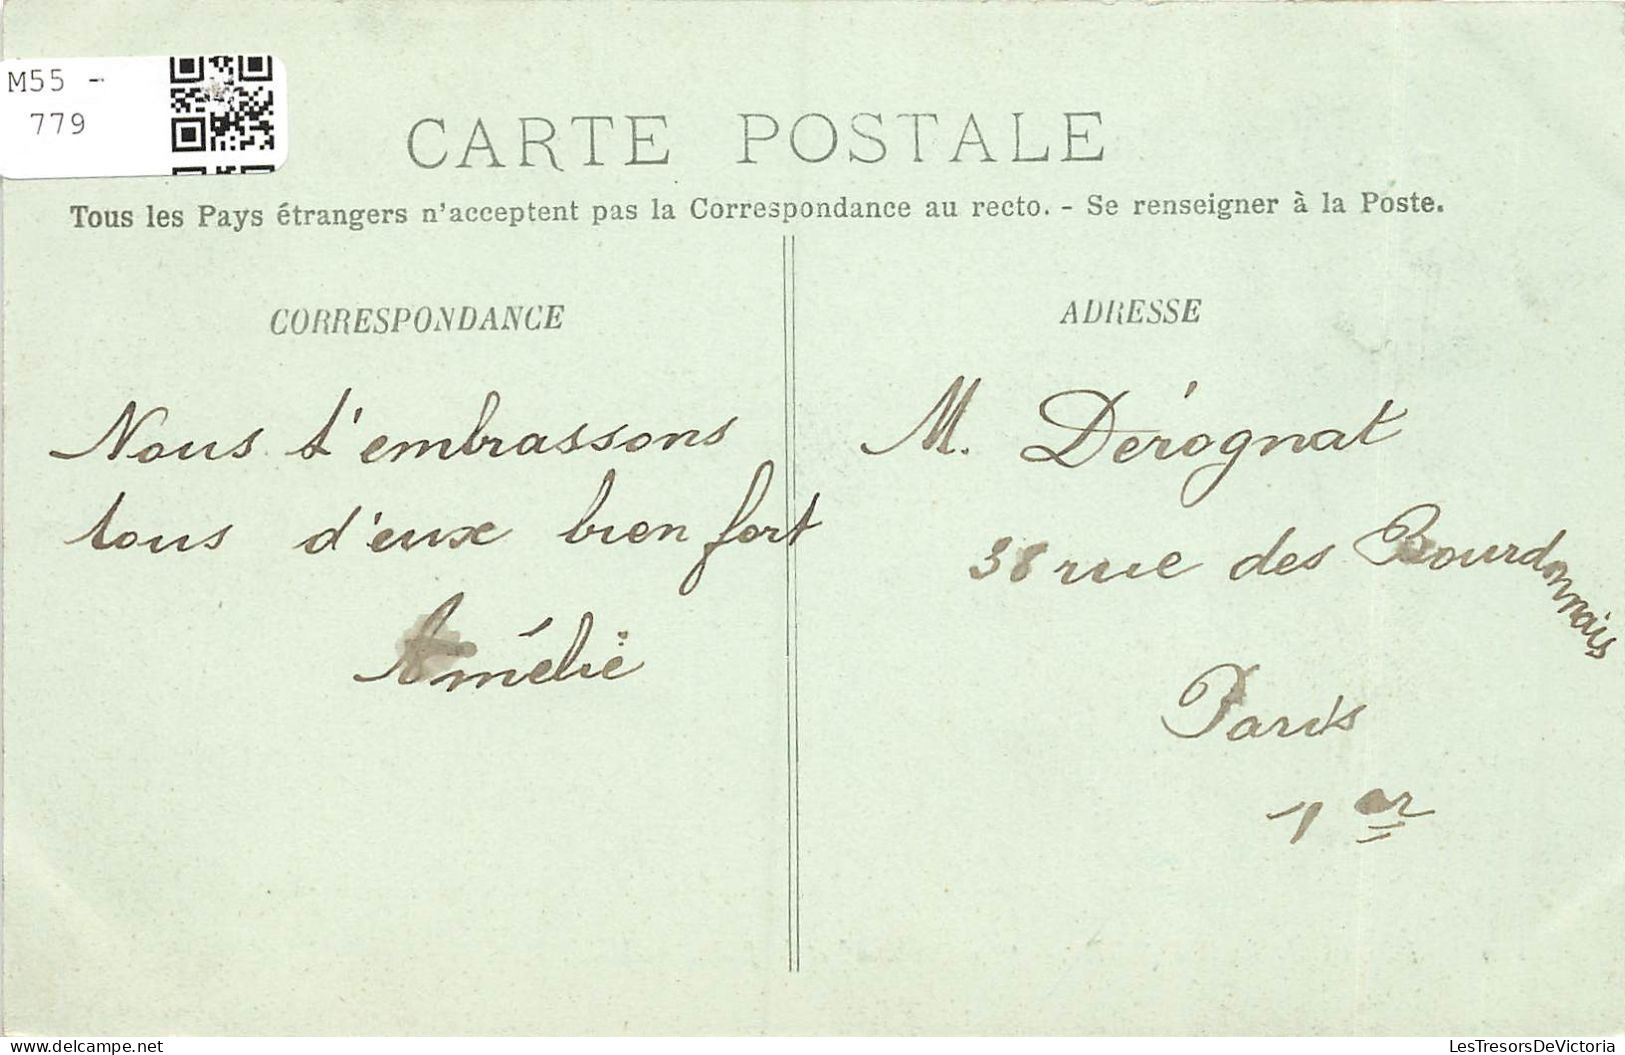 M55 -
779
CARTE POSTALE
Tous les Pays étrangers n'acceptent pas la Correspondance au recto. - Se renseigner à la Poste.
CORRESPONDANCE
Nous t'embrassons
tous d'eux bien fort
Amélie
ADRESSE
M. Dérognat
38 rue des Bourdonnais
Paris
1er
www.delcampe.net
LesTresorsDeVictoria